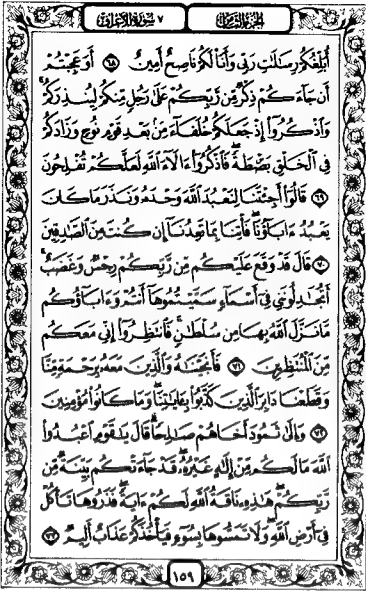 الجزء الثامن
٧ سورة الأعراف
أُبَلِّغُكُمْ رِسَٰلَٰتِ رَبِّي وَأَنَا۠ لَكُمْ نَاصِحٌ أَمِينٌ ٦٨ أَوَعَجِبْتُمْ
أَن جَآءَكُمْ ذِكْرٌ مِّن رَّبِّكُمْ عَلَىٰ رَجُلٍ مِّنكُمْ لِيُنذِرَكُمْ ۚ
وَٱذْكُرُوٓا۟ إِذْ جَعَلَكُمْ خُلَفَآءَ مِنۢ بَعْدِ قَوْمِ نُوحٍ وَزَادَكُمْ
فِي ٱلْخَلْقِ بَصْۜطَةً ۖ فَٱذْكُرُوٓا۟ ءَالَآءَ ٱللَّهِ لَعَلَّكُمْ تُفْلِحُونَ
٦٩ قَالُوٓا۟ أَجِئْتَنَا لِنَعْبُدَ ٱللَّهَ وَحْدَهُۥ وَنَذَرَ مَا كَانَ
يَعْبُدُ ءَابَآؤُنَا ۖ فَأْتِنَا بِمَا تَعِدُنَآ إِن كُنتَ مِنَ ٱلصَّٰدِقِينَ
٧٠ قَالَ قَدْ وَقَعَ عَلَيْكُم مِّن رَّبِّكُمْ رِجْسٌ وَغَضَبٌ ۖ
أَتُجَٰدِلُونَنِي فِيٓ أَسْمَآءٍ سَمَّيْتُمُوهَآ أَنتُمْ وَءَابَآؤُكُم
مَّا نَزَّلَ ٱللَّهُ بِهَا مِن سُلْطَٰنٍ ۚ فَٱنتَظِرُوٓا۟ إِنِّي مَعَكُم
مِّنَ ٱلْمُنتَظِرِينَ ٧١ فَأَنجَيْنَٰهُ وَٱلَّذِينَ مَعَهُۥ بِرَحْمَةٍ مِّنَّا
وَقَطَعْنَا دَابِرَ ٱلَّذِينَ كَذَّبُوا۟ بِـَٔايَٰتِنَا ۖ وَمَا كَانُوا۟ مُؤْمِنِينَ
٧٢ وَإِلَىٰ ثَمُودَ أَخَاهُمْ صَٰلِحًا ۗ قَالَ يَٰقَوْمِ ٱعْبُدُوا۟
ٱللَّهَ مَا لَكُم مِّنْ إِلَٰهٍ غَيْرُهُۥ ۖ قَدْ جَآءَتْكُم بَيِّنَةٌ مِّن
رَّبِّكُمْ ۖ هَٰذِهِۦ نَاقَةُ ٱللَّهِ لَكُمْ ءَايَةً ۖ فَذَرُوهَا تَأْكُلْ
فِيٓ أَرْضِ ٱللَّهِ ۖ وَلَا تَمَسُّوهَا بِسُوٓءٍ فَيَأْخُذَكُمْ عَذَابٌ أَلِيمٌ ٧٣
١٥٩